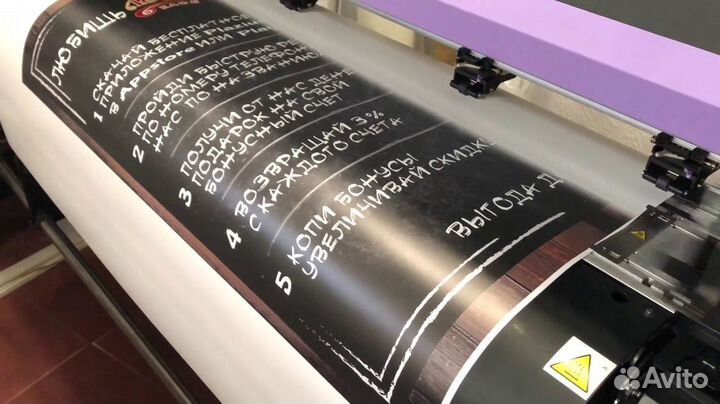 ЛЮБИШЬ
1 СКАЧАЙ БЕСПЛАТНО
ПРИЛОЖЕНИЕ
В APPstore ИЛИ Pla
2 ПРОЙДИ БЫСТРУЮ
ПО НОМЕРУ ТЕЛЕФОН
НАС ПО НАЗВАНИЮ
3 ПОЛУЧИ ОТ НАС ДЕНЕ
ПОДАРОК НА СВОЙ
БОНУСНЫЙ СЧЕТ
4 ВОЗВРАЩАЙ 3%
С КАЖДОГО СЧЕТА
5 КОПИ БОНУСЫ
УВЕЛИЧИВАЙ СКИДКУ
ВЫГОДА Д
Avito